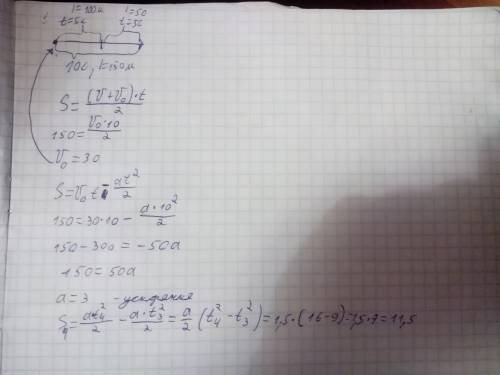 l=100м l=50
1 t=5c t=5c
10c, l=150м
S = (V+V₀)·t / 2
150 = V₀·10 / 2
V₀ = 30
S = V₀t - at² / 2
150 = 30·10 - a·10² / 2
150 - 300 = -50a
150 = 50a
a = 3 - ускорение
S₄ = at₄² / 2 - a·t₃² / 2 = a / 2 (t₄² - t₃²) = 1,5·(16-9) = 1,5·7 = 11,5